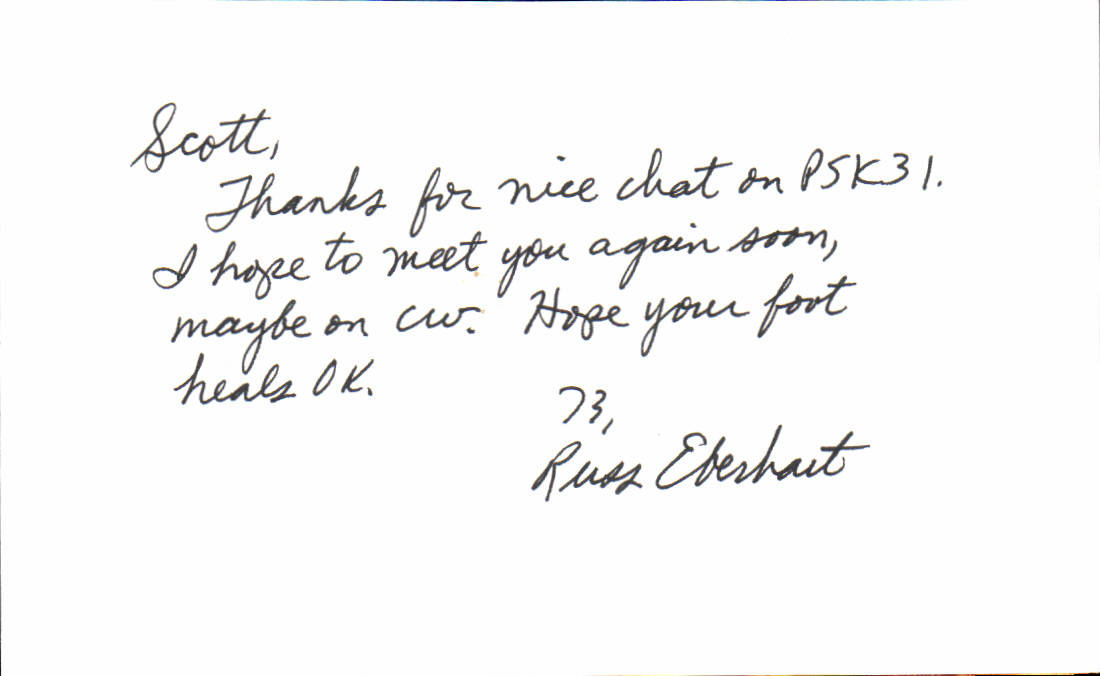 Scott,
Thanks for nice chat on PSK31.
I hope to meet you again soon,
maybe on cw. Hope your foot
heals OK.
73,
Russ Eberhart